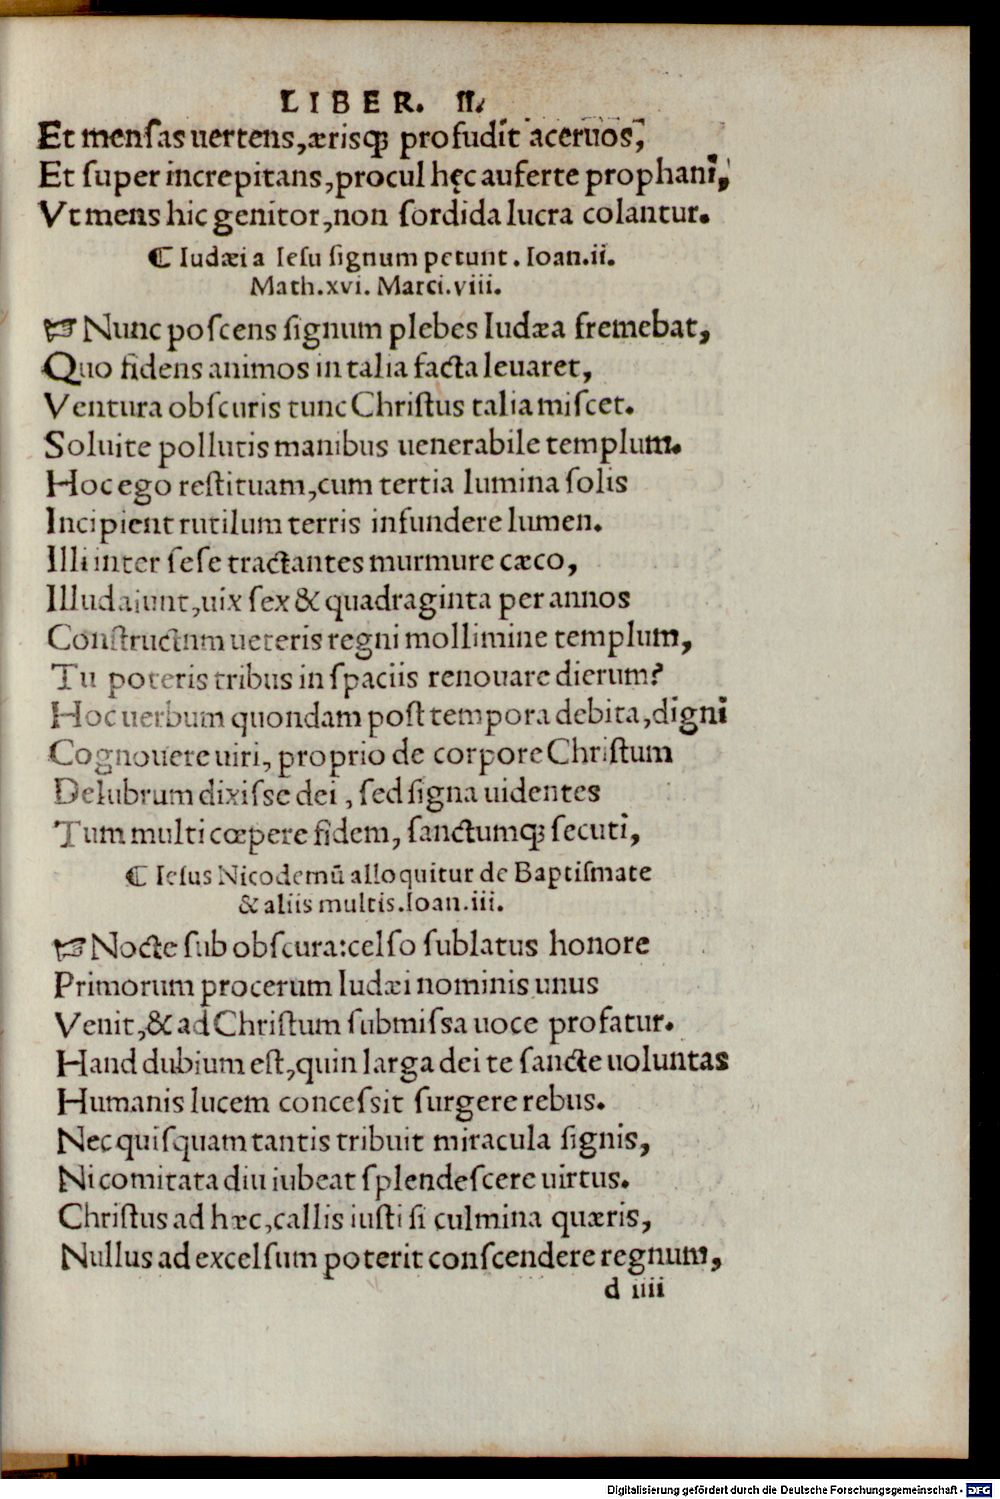 LIBER. II.
Et mensas uertens,ærisqꝫ profudit aceruos,
Et super increpitans,procul hęc auferte prophani,
Vt mens hic genitor,non sordida lucra colantur.
⁋ Iudæi a Iesu signum petunt. Ioan.ii.
Math.xvi. Marci.viii.
☞ Nunc poscens signum plebes Iudæa fremebat,
Quo fidens animos in talia facta leuaret,
Ventura obscuris tunc Christus talia miscet.
Soluite pollutis manibus uenerabile templum.
Hoc ego restituam,cum tertia lumina solis
Incipient rutilum terris infundere lumen.
Illi inter sese tractantes murmure cæco,
Illud aiunt,uix sex & quadraginta per annos
Constructum ueteris regni mollimine templum,
Tu poteris tribus in spaciis renouare dierum?
Hoc uerbum quondam post tempora debita,digni
Cognouere uiri, proprio de corpore Christum
Delubrum dixisse dei, sed signa uidentes
Tum multi cœpere fidem, sanctumqꝫ secuti,
⁋ Iesus Nicodemū alloquitur de Baptismate
& aliis multis.Ioan.iii.
☞ Nocte sub obscura:celso sublatus honore
Primorum procerum Iudæi nominis unus
Venit,& ad Christum submissa uoce profatur.
Hand dubium est,quin larga dei te sancte uoluntas
Humanis lucem concessit surgere rebus.
Nec quisquam tantis tribuit miracula signis,
Ni comitata diu iubeat splendescere uirtus.
Christus ad hæc,callis iusti si culmina quæris,
Nullus ad excelsum poterit conscendere regnum,
d iiii
Digitalisierung gefördert durch die Deutsche Forschungsgemeinschaft - DFG